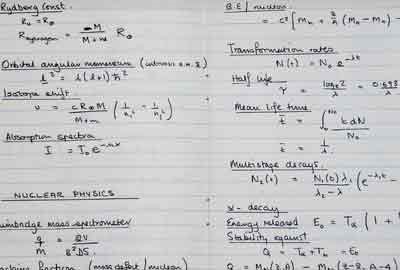 Rydberg Const.
R∞ = R∞
R hydrogen = M / M+m R∞
Orbital angular momentum (intrinsic
l² = l(l+1)ħ²
Isotope shift.
ν = cR∞M / M+m (1/n² - 1/n²)
Absorption spectra
I = I₀e
NUCLEAR PHYSICS
mass spectrometer
q/m = 2V / B²DS.
fraction (mass defect/nucleon)
B.E/nucleon
= c² [Mn + z/A (MH - Mn) -
Transformation rates
N(t) = N₀ e^-λt
Half life
τ = loge2 / λ = 0.693 / λ
Mean life time
t̄ = ∫ tdN / N₀
t̄ = 1/λ
Multistage decays.
N₂(t) = N₁(0)λ₁ / λ₂ - λ₁ (e^-λ₁t -
α - decay
Energy released E₀ = Tα (1 +
Stability against
Q = Tα + Tb = E₀
Q = M(Z,A) - M(Z-2, A-4)